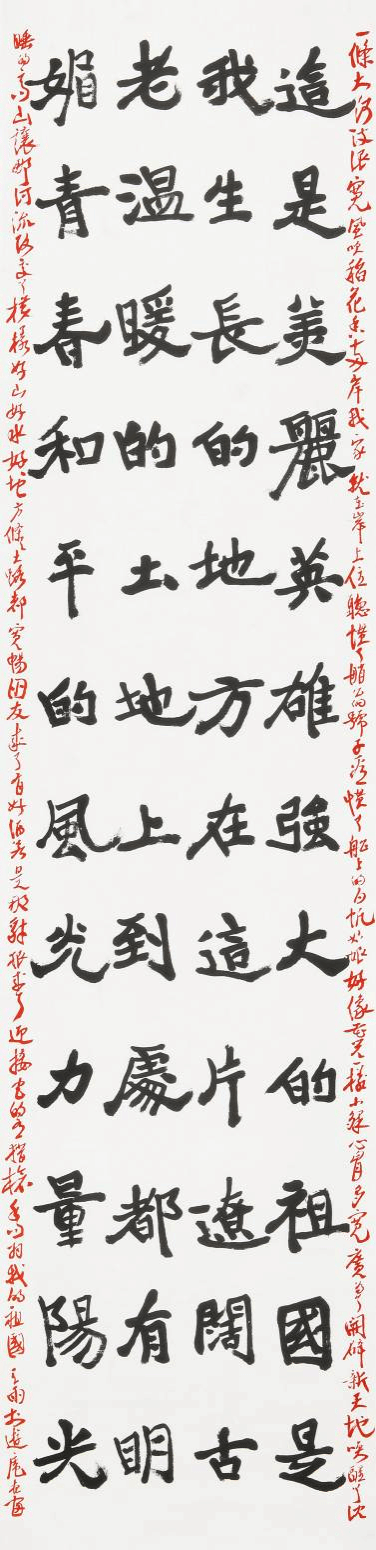 一條大河波浪寬風吹稻花香十兩岸我家就在岸上住聽慣了艄公的號子看慣了船上的白帆姑娘好像花兒一樣小夥心胸多寬廣為了開辟新天地喚醒了沈
這是美麗英雄強大的祖國是
我生長的地方在這片遼闊古
老溫暖的土地上到處都有明
媚青春和平的風光力量陽光
睡的高山讓那河流改變了模樣好山好水好地方條大路都寬暢朋友來了有好酒若是那豺狼來了迎接它的有獵槍 我的祖國 雨书